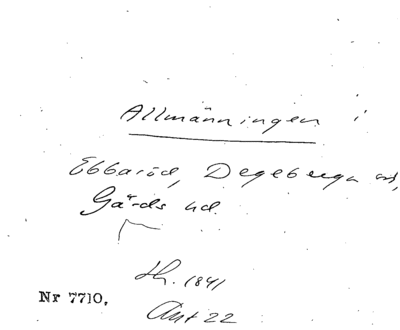 Allmänningen i
Ebbaröd, Degeberga sn,
Gärds hd.
Th. 1841
Nr 7710.
Ant 22